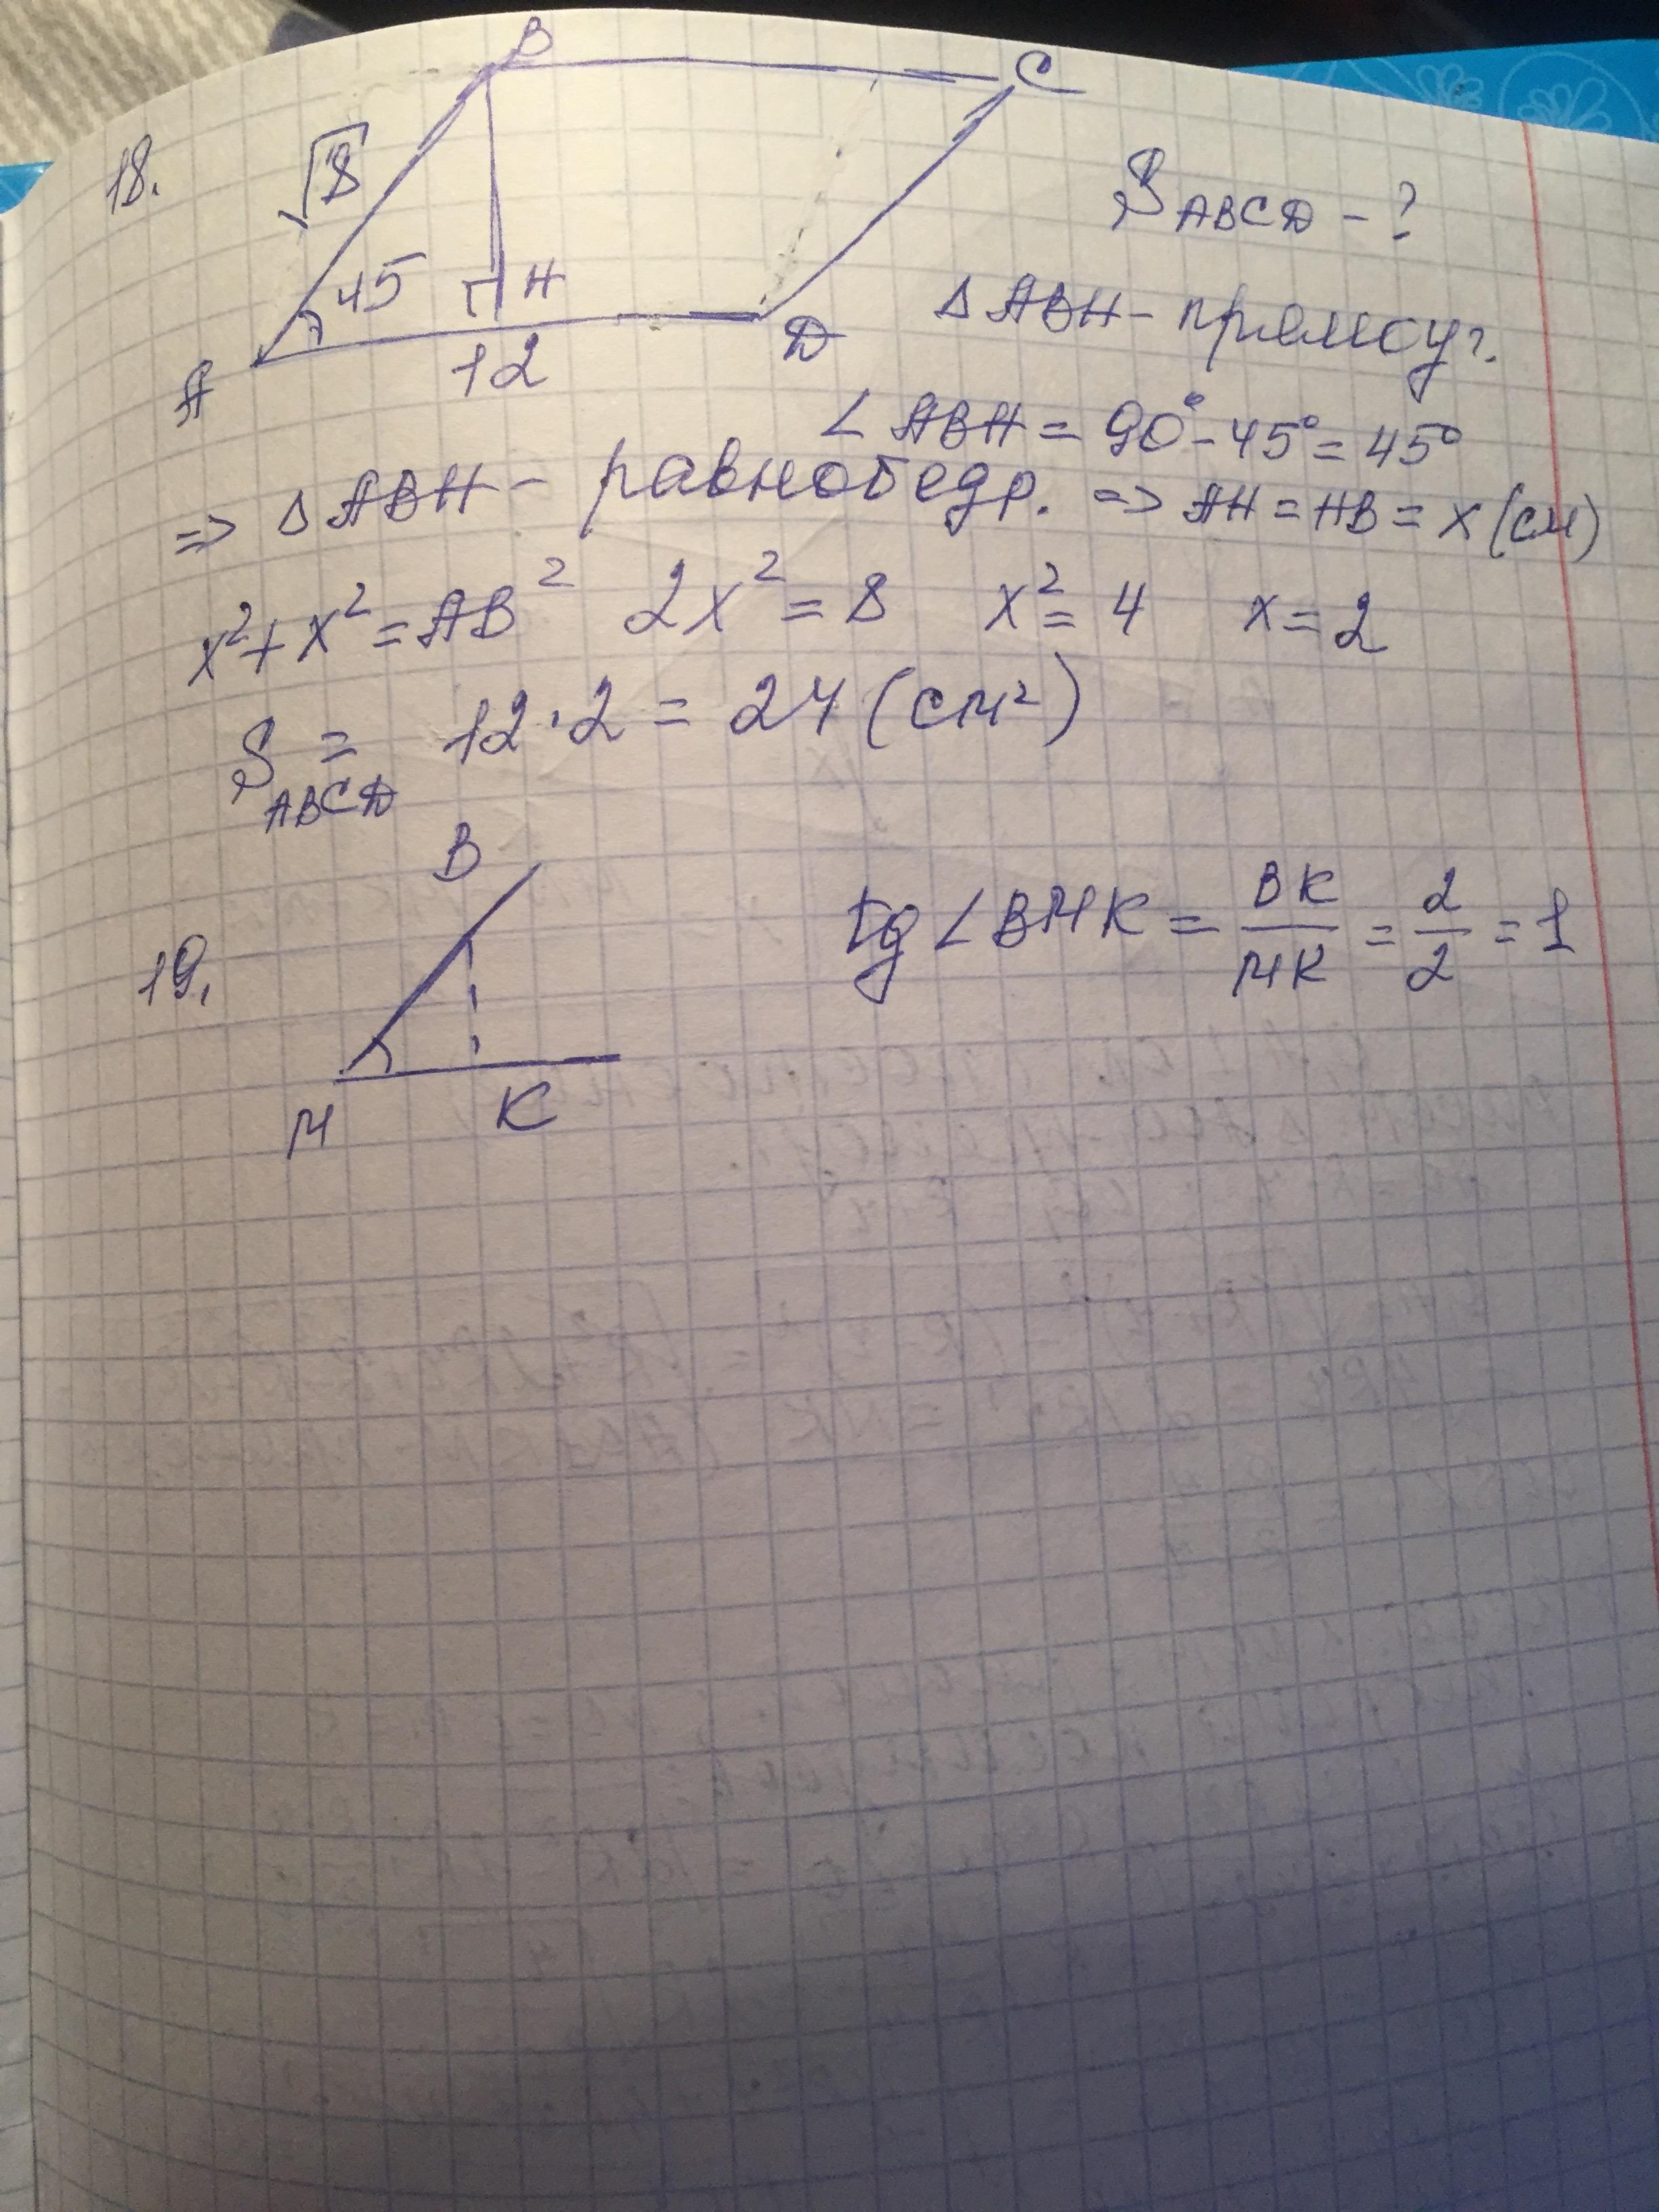 18.
B
C
√8
45
H
A
12
D
S ABCD - ?
Δ ABH - прямоуг.
∠ ABH = 90° - 45° = 45°
=> Δ ABH - равнобедр. => AH = HB = x (см)
x² + x² = AB² 2x² = 8 x² = 4 x = 2
S ABCD = 12 · 2 = 24 (см²)
19.
B
M
K
tg ∠ BMK = BK/MK = 2/2 = 1